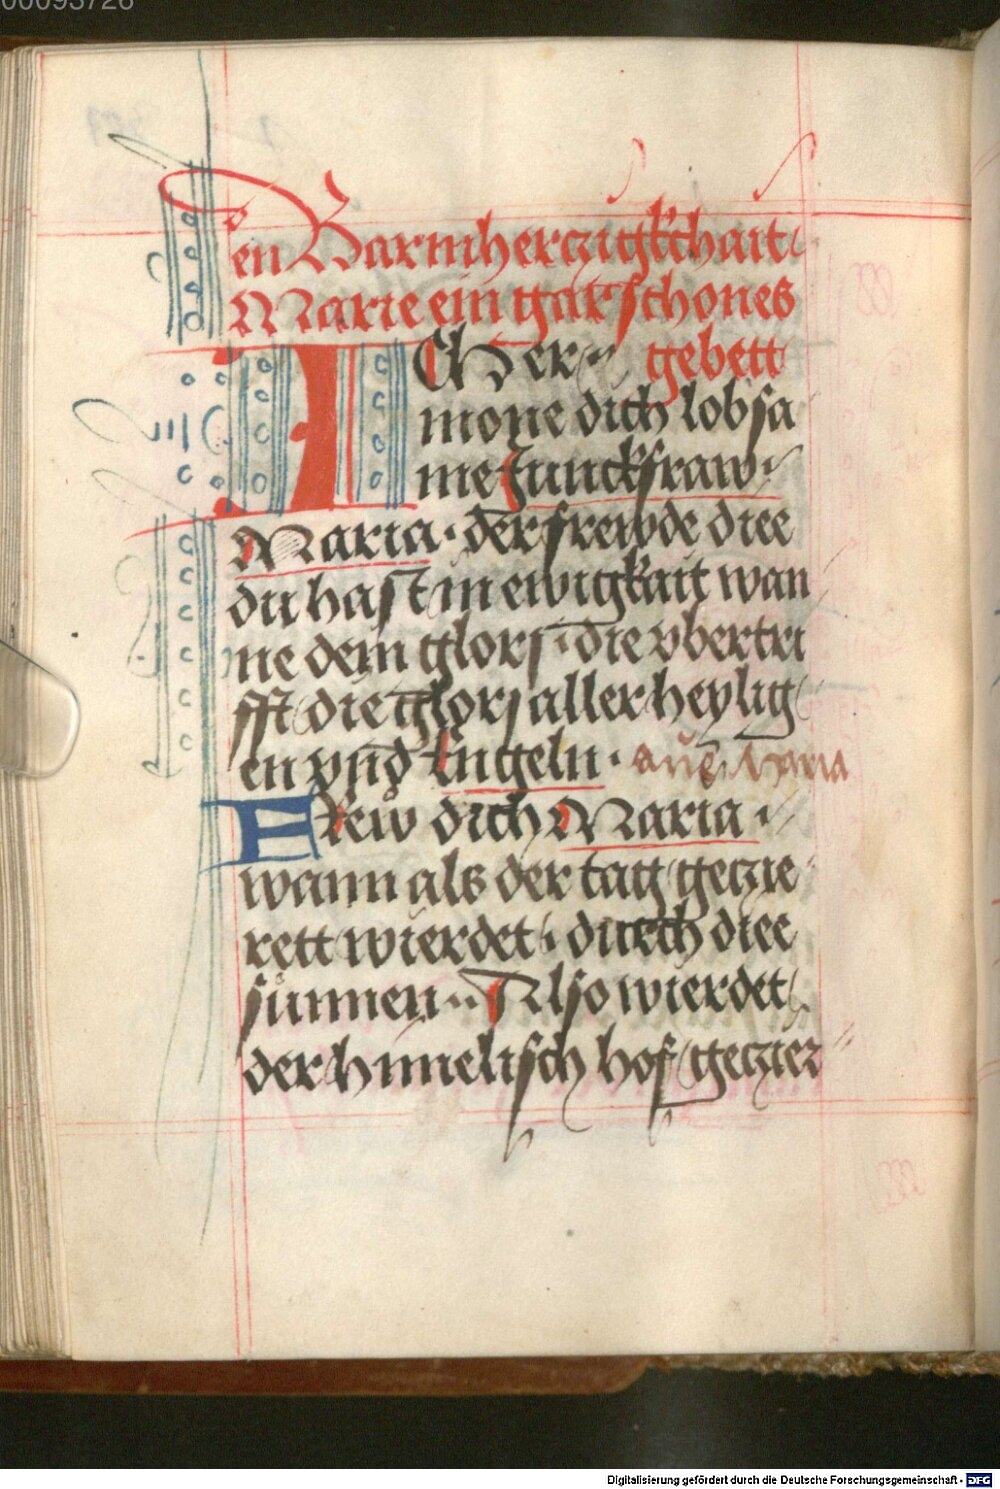 00093726
Den Barmherczigkchait
Marie ein gar schones
ICH er gebett
mone dich lobsa
me Junckfraw
Maria · der frewde diee
du hast in ewigkait wan
ne dein glorj · die vbertri
fft die glorj aller heylig
en vnd Engeln · aue Maria
Frew dich Maria ·
wann als der tag geczie
rett wierdet · durch diee
sunnen · Also wierdet
der himelisch hof geczier
Digitalisierung gefördert durch die Deutsche Forschungsgemeinschaft - DFG